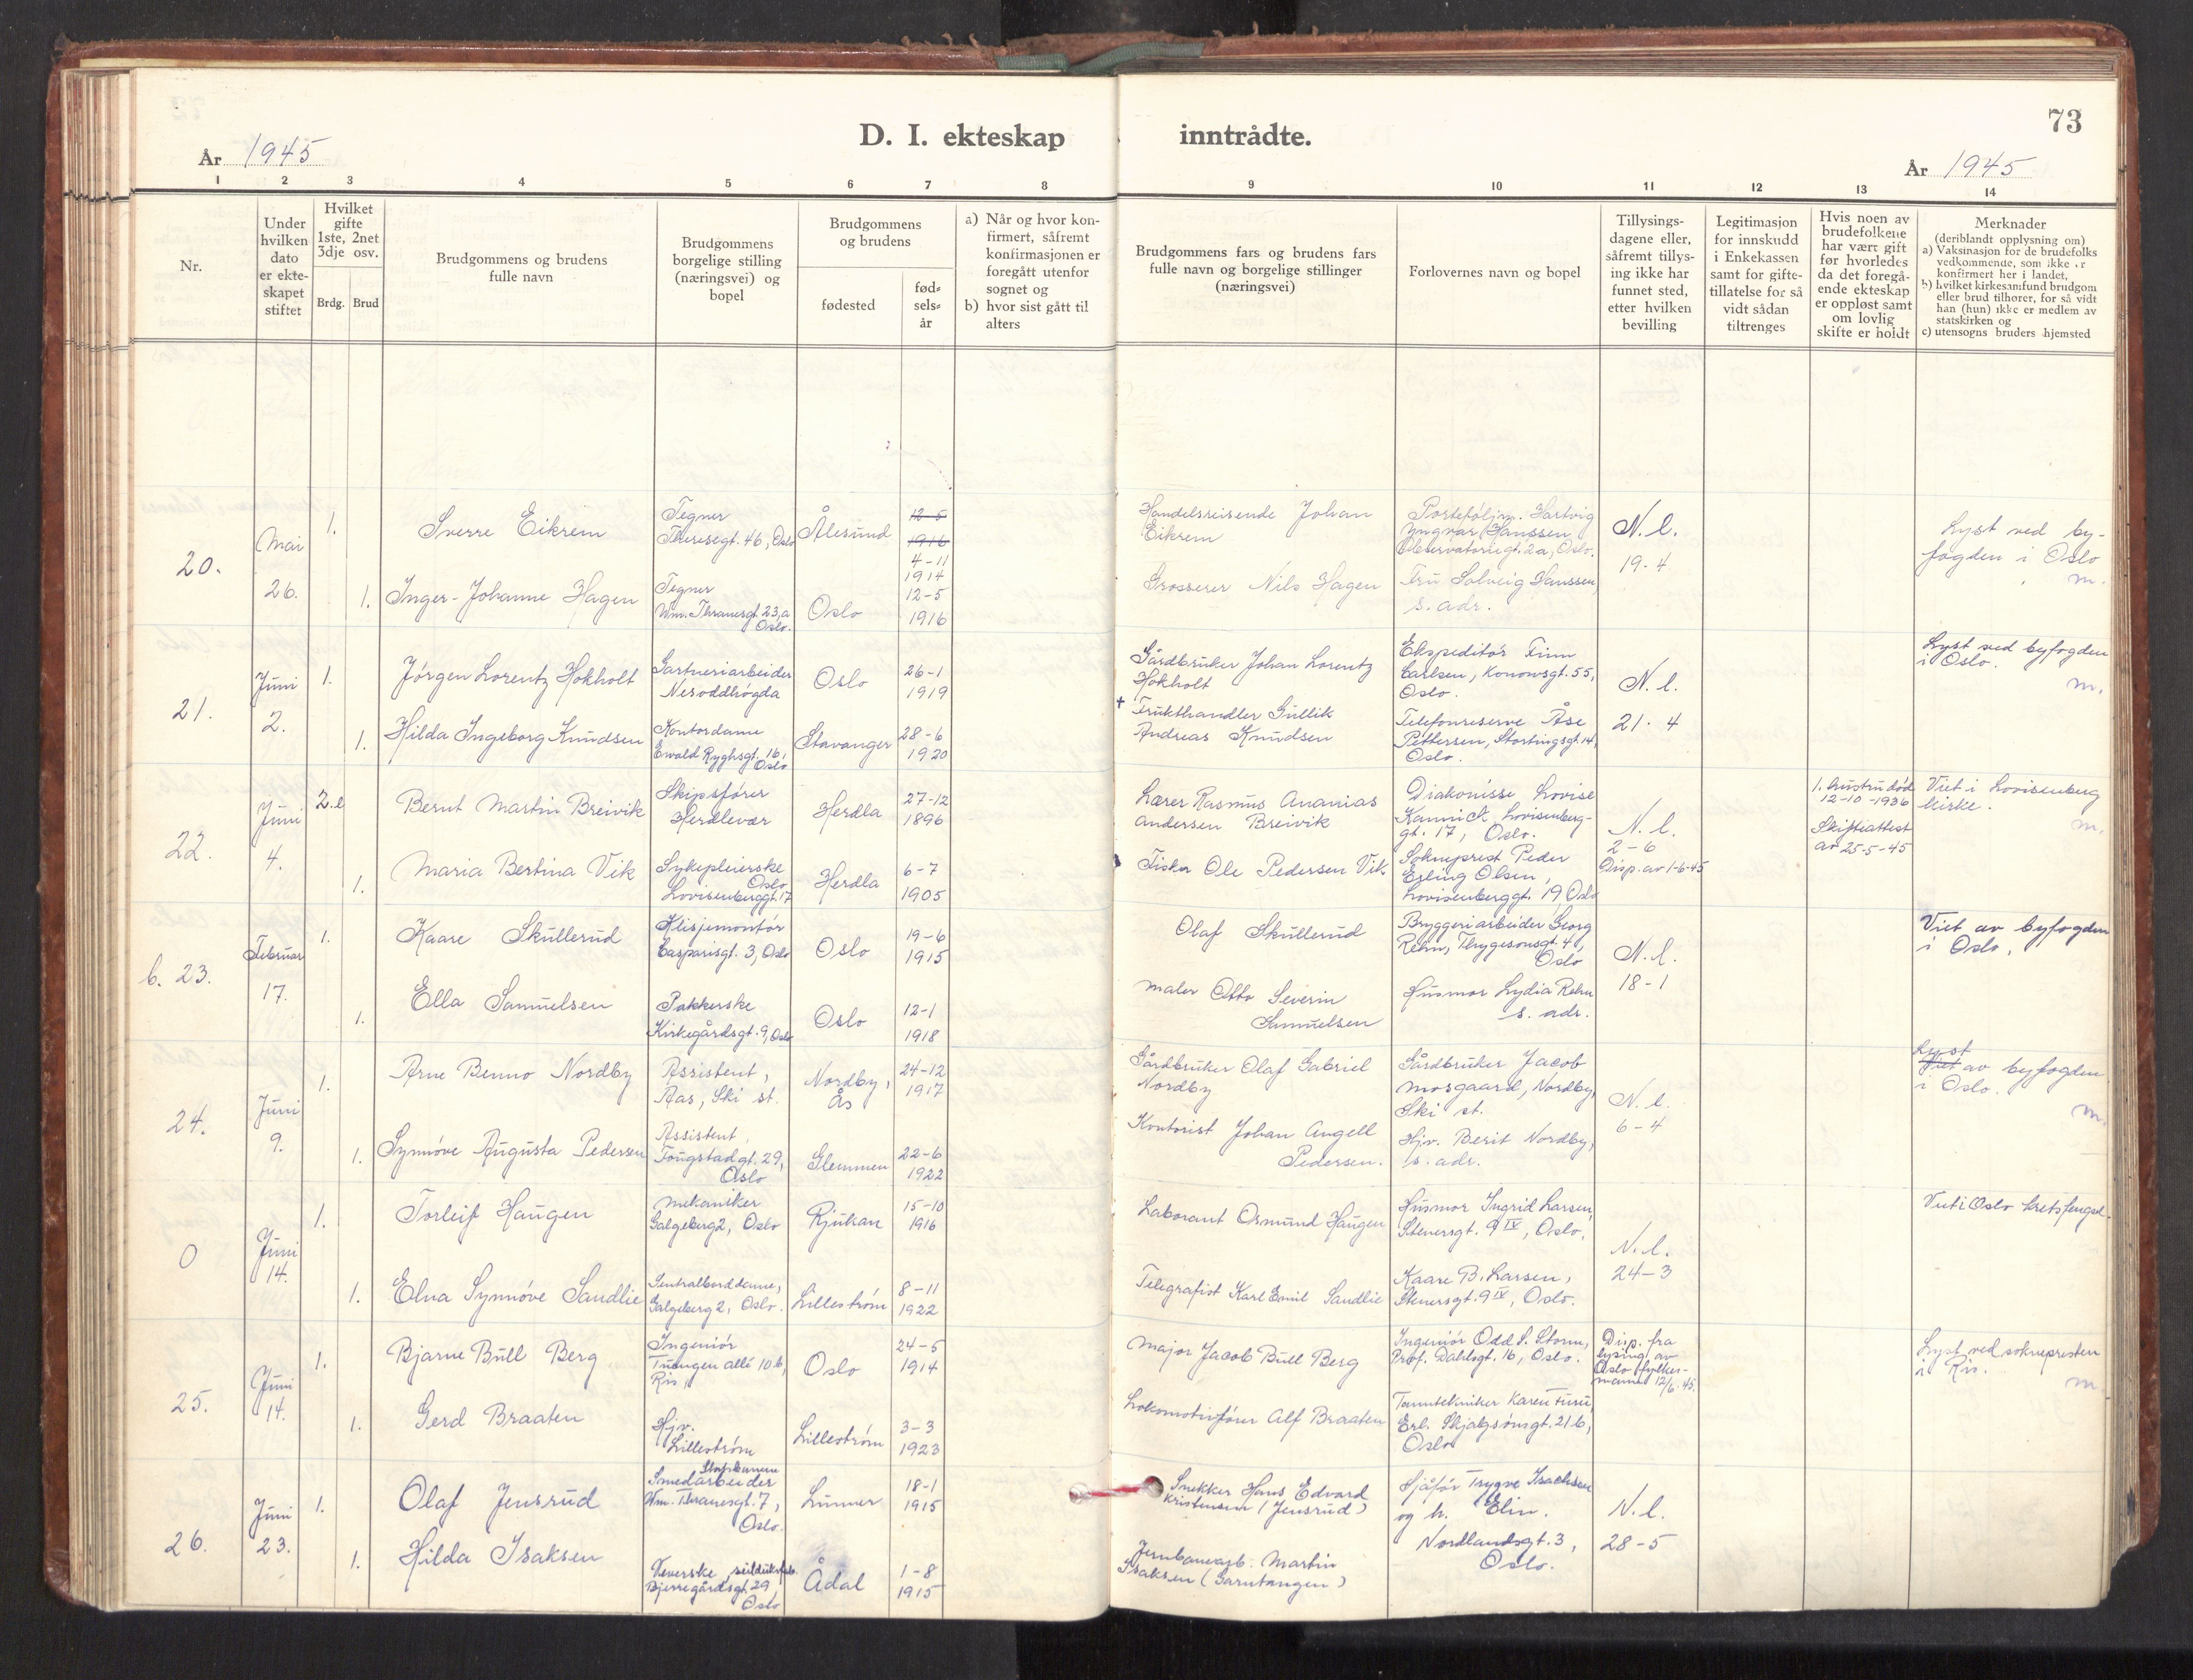 73
D. I. ekteskap inntrådte.
År 1945
År 1945
1 2 3 4 5 6 7 8 9 10 11 12 13 14
Nr.
Under
hvilken
dato
er ekte-
skapet
stiftet
Hvilket
gifte
1ste, 2net
3dje osv.
Brdg. Brud
Brudgommens og brudens
fulle navn
Brudgommens
borgelige stilling
(næringsvei) og
bopel
Brudgommens
og brudens
fødested
fød-
sels-
år
a) Når og hvor kon-
firmert, såfremt
konfirmasjonen er
foregått utenfor
sognet og
b) hvor sist gått til
alters
Brudgommens fars og brudens fars
fulle navn og borgelige stillinger
(næringsvei)
Forlovernes navn og bopel
Tillysings-
dagene eller,
såfremt tillys-
ing ikke har
funnet sted,
etter hvilken
bevilling
Legitimasjon
for innskudd
i Enkekassen
samt for gifte-
tillatelse for så
vidt sådan
tiltrenges
Hvis noen av
brudefolkene
har vært gift
før hvorledes
da det foregå-
ende ekteskap
er oppløst samt
om lovlig
skifte er holdt
Merknader
(deriblandt opplysning om)
a) Vaksinasjon for de brudefolks
vedkommende, som ikke er
konfirmert her i landet,
b) hvilket kirkesamfund brudgom
eller brud tilhører, for så vidt
han (hun) ikke er medlem av
statskirken og
c) utensogns bruders hjemsted
20.
Mai
26.
1.
Sverre Eikrem
Tegner
Theresegt. 46, Oslo
Ålesund
12-5
1916
4-11
1914
Handelsreisende Johan
Eikrem
Porteføljm. Hartvig
Yngvar Hanssen,
Observatoriegt. 2a, Oslo.
N. l.
19-4
Lyst ved by-
fogden i Oslo
m.
1.
Inger-Johanne Hagen
Tegner
Wm. Thranesgt. 23,a
Oslo.
Oslo
12-5
1916
Grosserer Nils Hagen
Fru Solveig Hanssen,
s. adr.
21.
Juni
2.
1.
Jørgen Lorentz Hokholt
Gartneriarbeider
Nesoddhøgda
Oslo
26-1
1919
Gårdbruker Johan Lorentz
Hokholt
Ekspeditør Finn
Carlsen, Konowsgt. 55,
Oslo.
N. l.
21. 4
Lyst ved byfogden
i Oslo.
m.
1.
Hilda Ingeborg Knudsen
Kontordame
Ewald Ryghsgt. 16,
Oslo
Stavanger
28-6
1920
+ Frukthandler Gullik
Andreas Knudsen
Telefonreserve Åse
Pettersen, Stortingsgt. 14,
Oslo.
22.
Juni
4.
2.
Bernt Martin Breivik
Skipsfører
Herdlevær
Herdla
27-12
1896
Lærer Rasmus Ananias
Andersen Breivik
Diakonisse Lovise
Kannick, Lovisenberg-
gt. 17, Oslo.
N. l.
2-6
Disp. av 1-6-45
1. hustru død
12-10-1936
Skifteattest
av 25-5-45
Viet i Lovisenberg
kirke.
m.
1.
Maria Bertina Vik
Sykepleierske
Oslo
Lovisenberggt. 17
Herdla
6-7
1905
Fisker Ole Pedersen Vik
Sokneprest Peder
Erling Olsen,
Lovisenberggt. 19 Oslo
b. 23.
Februar
17.
1.
Kaare Skullerud
Klisjemontør
Casparisgt. 3, Oslo
Oslo
19-6
1915
Olaf Skullerud
Bryggeriarbeider Georg
Rehn, Thygesonsgt. 4,
Oslo
N. l.
18-1
Viet av byfogden
i Oslo.
1.
Ella Samuelsen
Pakkerske
Kirkegårdsgt. 9, Oslo
Oslo
12-1
1918
Maler Otto Severin
Samuelsen
Husmor Lydia Rehn
s. adr.
24.
Juni
9.
1.
Arne Benno Nordby
Assistent,
Aas, Ski st.
Nordby,
Ås
24-12
1917
Gårdbruker Olaf Gabriel
Nordby
Gårdbruker Jacob
Mosgaard, Nordby,
Ski st.
N. l.
6-4
Lyst
Viet av byfogden
i Oslo.
m.
1.
Synnøve Augusta Pedersen
Assistent,
Tougstadgt. 29,
Oslo
Glemmen
22-6
1922
Kontorist Johan Angell
Pedersen.
Hjv. Berit Nordby,
s. adr.
0
Juni
14.
1.
Torleif Haugen
Mekaniker
Galgeberg 2, Oslo
Rjukan
15-10
1916
Laborant Osmund Haugen
Husmor Ingrid Larsen,
Stenersgt. 9 IV, Oslo.
N. l.
24-3
Viet i Oslo kretsfengsel.
1.
Elna Synnøve Sandlie
Sentralborddame,
Galgeberg 2, Oslo.
Lillestrøm
8-11
1922
Telegrafist Karl Emil Sandlie
Kaare B. Larsen,
Stenersgt. 9 IV, Oslo.
25.
Juni
14.
1.
Bjarne Bull Berg
Ingeniør
Tuengen allé 10 b,
Ris,
Oslo
24-5
1914
Major Jacob Bull Berg
Ingeniør Odd S. Storm,
Prof. Dahlsgt. 16, Oslo.
Disp. fra
lysing av
Oslo fylkes-
mann 12/6.45.
Lyst ved soknepresten
i Ris.
m.
1.
Gerd Braaten
Hjv.
Lillestrøm
Lillestrøm
3-3
1923
Lokomotivfører Alf Braaten
Tanntekniker Karen Furu,
Erl. Skjalgsønsgt. 21 b,
Oslo
26.
Juni
23.
1.
Olaf Jensrud
Smedarbeider
Wm. Thranesgt. 7,
Oslo.
Lunner
18-1
1915
Snekker Hans Edvard
Kristensen (Jensrud)
Sjåfør Trygve Isachsen
og h. Elin.
Nordlandsgt. 3,
Oslo.
N. l.
28-5
1.
Hilda Isaksen
Veverske, seildukfab.
Bjerregårdsgt. 29,
Oslo
Ådal
1-8
1915
Jernbanearb. Martin
Isaksen (Garntangen)